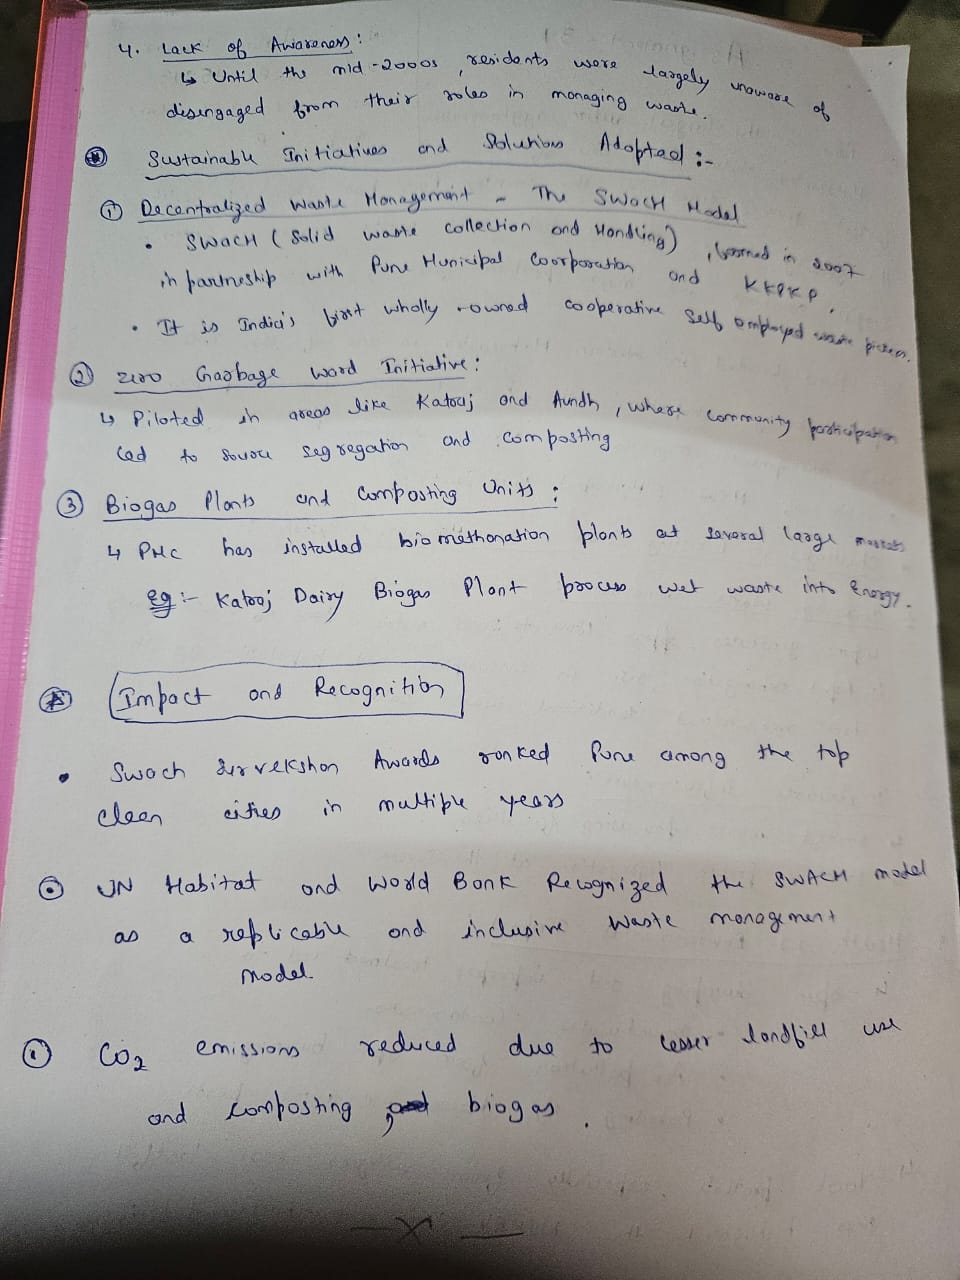 4. Lack of Awareness :
↳ Until the mid-2000s, residents were largely unaware of
disengaged from their roles in managing waste.
Sustainable Initiatives and Solutions Adopted :-
① Decentralized Waste Management - The SWACH Model
• SWACH (Solid waste collection and Handling), formed in 2007
in partneship with Pune Municipal Coorporation and KKPKP.
• It is India's first wholly-owned cooperative self employed waste pickers.
② Zero Garbage Word Initiative :
↳ Piloted in areas like Katraj and Aundh, where community participation
led to source segregation and composting
③ Biogas Plants and Composting Units :
↳ PMC has installed biomethanation plants at several large markets
eg :- Katraj Dairy Biogas Plant process wet waste into Energy.
Impact and Recognition
• Swach Survekshan Awards ranked Pune among the top
clean cities in multiple years
UN Habitat and World Bank Recognized the SWACH model
as a replicable and inclusive waste management
model.
CO2 emissions reduced due to lesser landfill use
and composting, biogas.
—x—